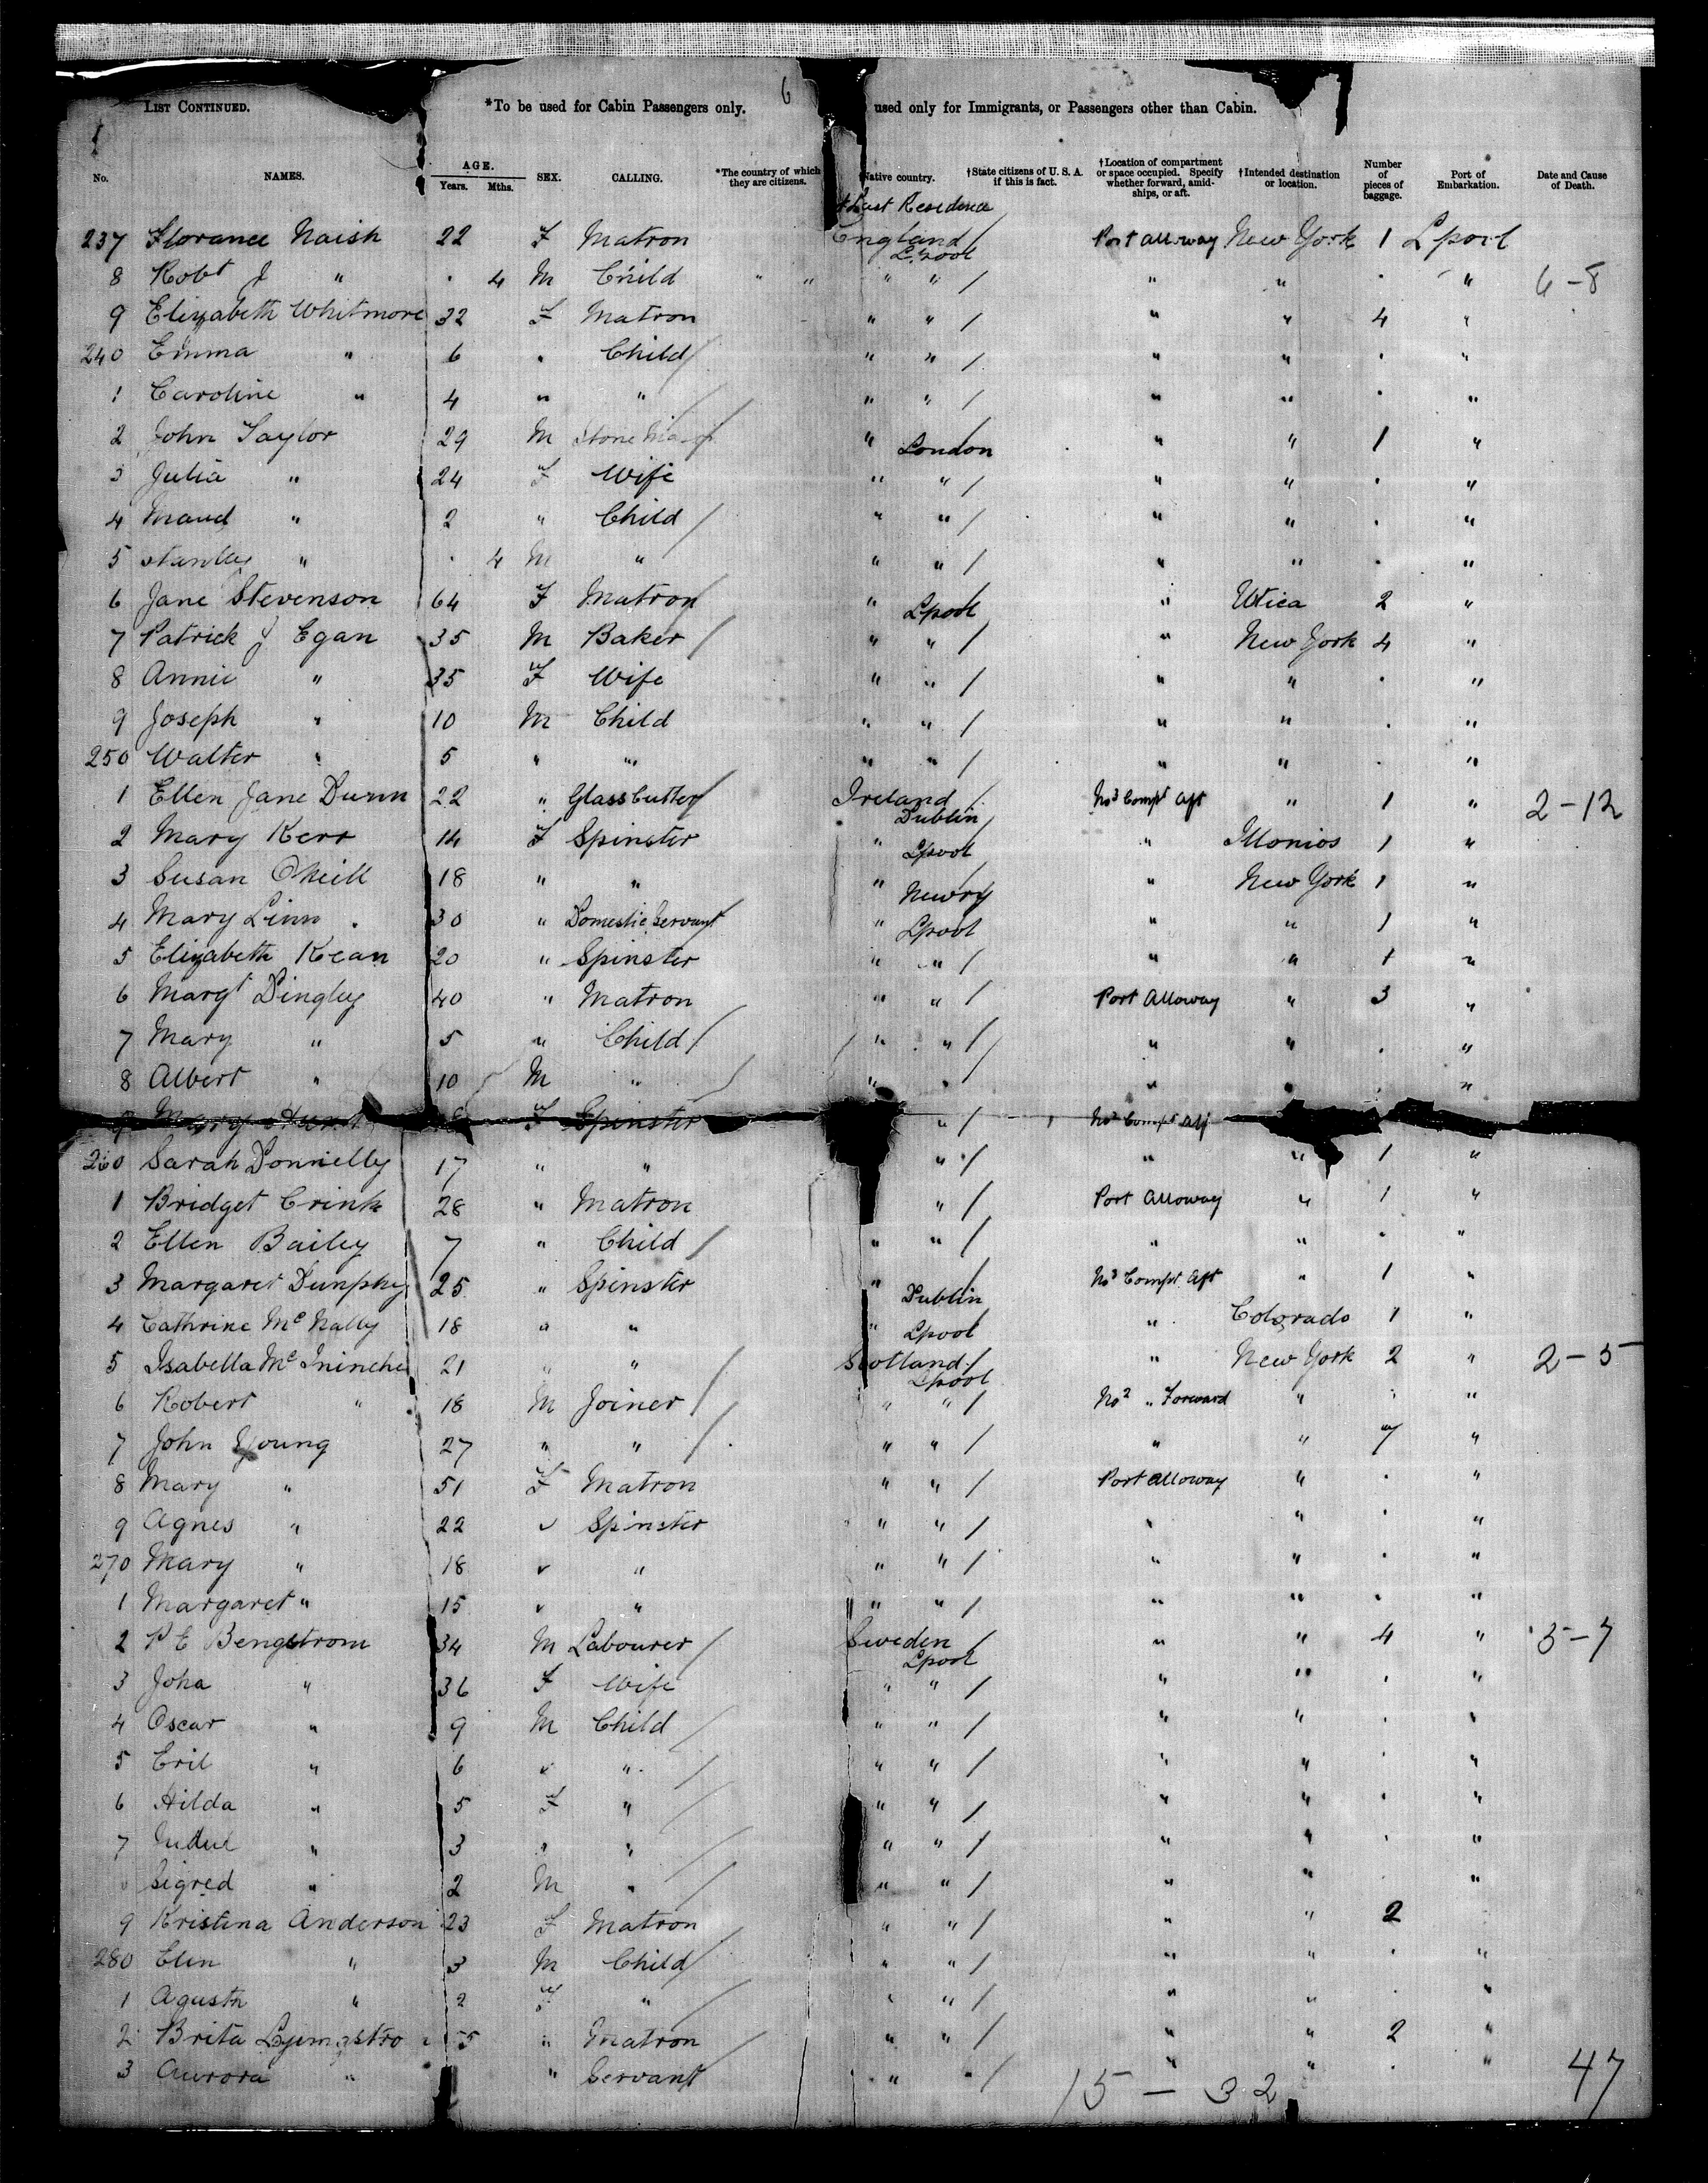 6
LIST CONTINUED. *To be used for Cabin Passengers only. used only for Immigrants, or Passengers other than Cabin.
No. NAMES. AGE. Years. Mths. SEX. CALLING. *The country of which they are citizens. †Native country. †State citizens of U. S. A. if this is fact. †Location of compartment or space occupied. Specify whether forward, amidships, or aft. †Intended destination or location. Number of pieces of baggage. Port of Embarkation. Date and Cause of Death.
Last Residence
237 Florance Naish 22 F Matron England / Lpool Port alloway New York 1 Lpool
8 Robt J " . 4 M Child " " " " / " " . " 6-8
9 Elizabeth Whitmore 32 F Matron " " / " " 4 "
240 Emma " 6 " Child / " " / " " . "
1 Caroline " 4 " " / " " / " " . "
2 John Taylor 29 M Stone Mason " London / " " 1 "
3 Julia " 24 F Wife " " / " " . "
4 Maud " 2 " Child / " " / " " . "
5 Stanley " . 4 M " " " / " " . "
6 Jane Stevenson 64 F Matron / " Lpool / " Utica 2 "
7 Patrick J Egan 35 M Baker / " " / " New York 4 "
8 Annie " 35 F Wife " " / " " . "
9 Joseph " 10 M Child " " / " " . "
250 Walter " 5 " " " " / " " . "
1 Ellen Jane Dunn 22 " Glass Cutter / Ireland / Dublin No 3 Compt Aft " 1 " 2-12
2 Mary Kerr 14 F Spinster " Lpool / " Illonios 1 "
3 Susan ONeill 18 " " " Newry / " New York 1 "
4 Mary Linn 30 " Domestic Servant / " Lpool " " 1 "
5 Elizabeth Kean 20 " Spinster " " / " " 1 "
6 Margt Dingley 40 " Matron " " / Port Alloway " 3 "
7 Mary " 5 " Child / " " / " " . "
8 Albert " 10 M " / " " / " " . "
9 Mary Hunt F Spinster " / Compt Aft
260 Sarah Donnelly 17 " " " / " " 1 "
1 Bridget Crink 28 " Matron " / Port Alloway " 1 "
2 Ellen Bailey 7 " Child / " " / " " . "
3 Margaret Dunphy 25 " Spinster " Dublin / No 3 Compt Aft " 1 "
4 Cathrine McNally 18 " " " Lpool " Colorado 1 "
5 Isabella 21 " " / Scotland / Lpool " New York 2 " 2-5
6 Robert " 18 M Joiner / " " / No 2 " Forward " . "
7 John Young 27 " " / " " / " " 7 "
8 Mary " 51 F Matron " " / Port alloway " . "
9 Agnes " 22 " Spinster " " / " " . "
270 Mary " 18 " " " " / " " . "
1 Margaret " 15 " " " " / " " . "
2 P E Bengstrom 34 M Labourer / Sweden / Lpool " " 4 " 5-7
3 Joha " 36 F Wife " " / " " . "
4 Oscar " 9 M Child / " " / " " . "
5 Eril " 6 " " / " " / " " . "
6 Hilda " 5 F " / " " / " " . "
7 " 3 " " / " " / " " . "
Sigred " 2 M " / " " / " " . "
9 Kristina Anderson 23 F Matron " " / " " 2
280 Elin " 3 M Child / " " / " " . "
1 Agusth " 2 F " / " " / " " . "
2 Brita 5 " Matron / " " / " " 2 "
3 Aurora " " Servant / " " / " " . "
15 - 32 47